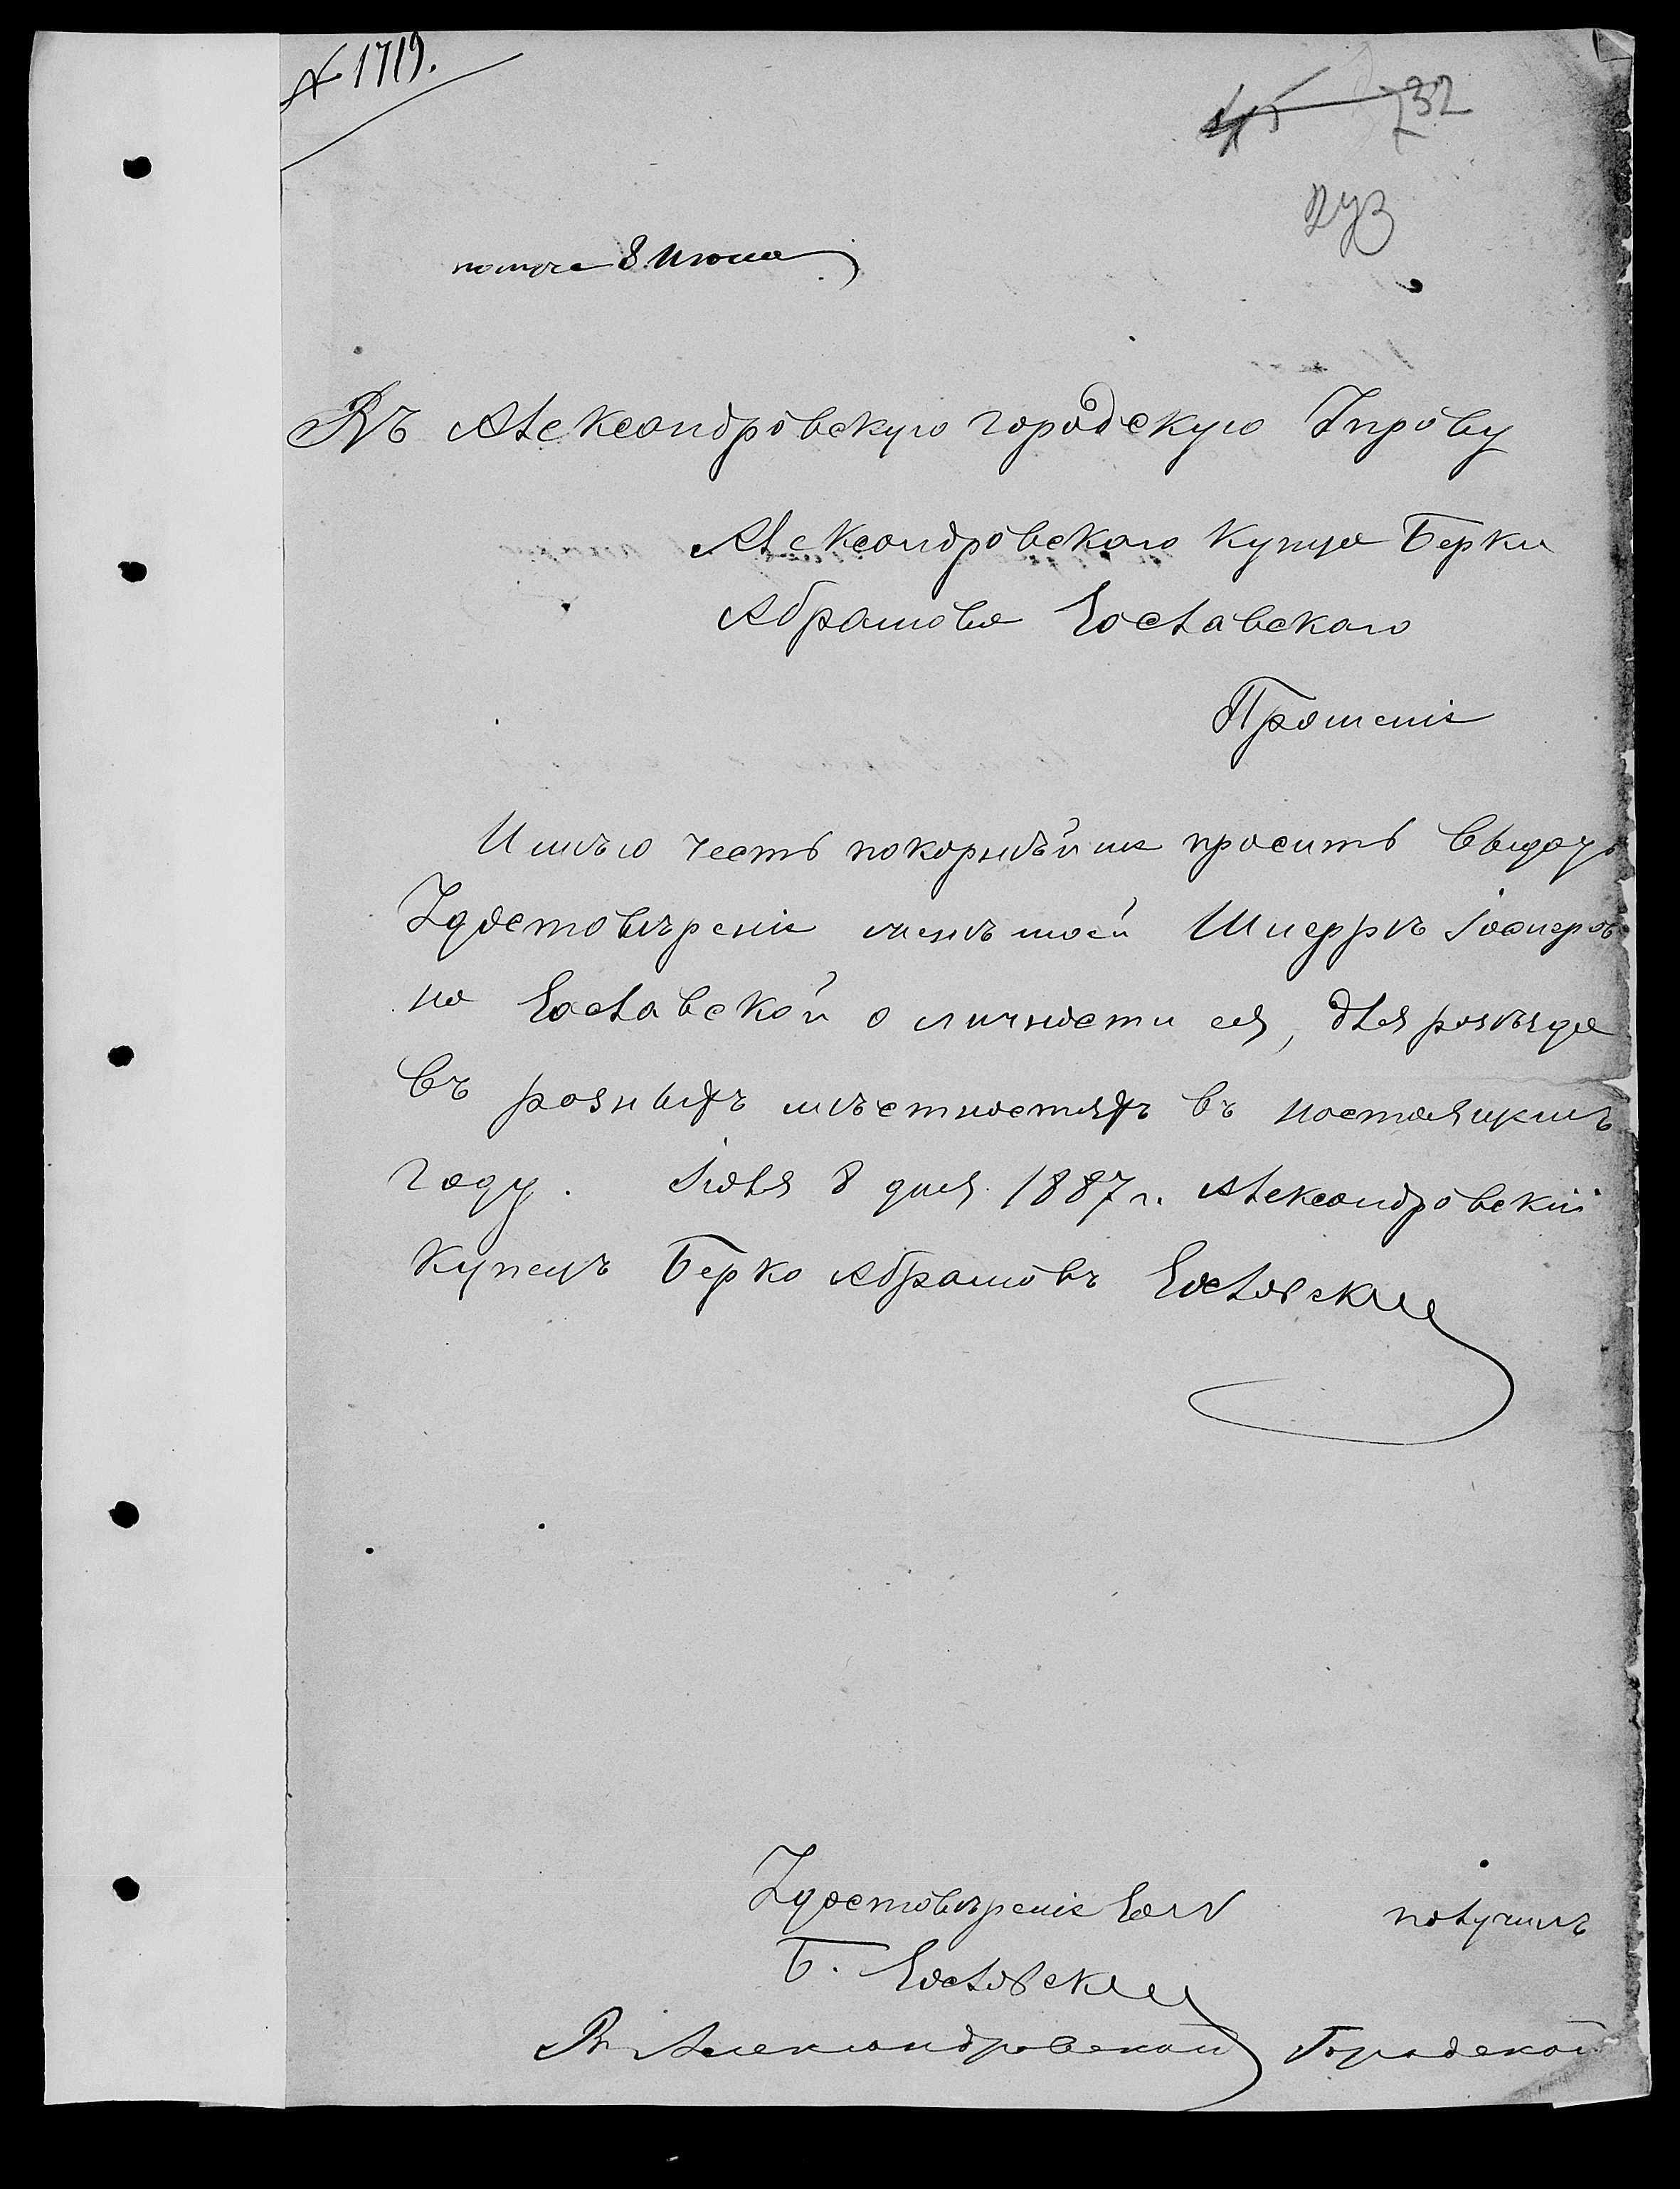 № 1719.
732
273
получе 8 Июня
Въ Александровскую городскую Управу
Александровскаго купца Берки
Абрамова Заславскаго
Прошеніе
Имѣю честь покорнѣйше просить выдачь
Удостовѣреніе женѣ моей
на Заславской о личности ея, для розъѣзда
въ розныхъ мѣстностяхъ въ ностоящимъ
году. Іюля 8 дня 1887 г. Александровскій
Купецъ Берко Абрамовъ Заславскій
Удостовѣреніе за № получилъ
Б. Заславскій
Въ Александровской Городской